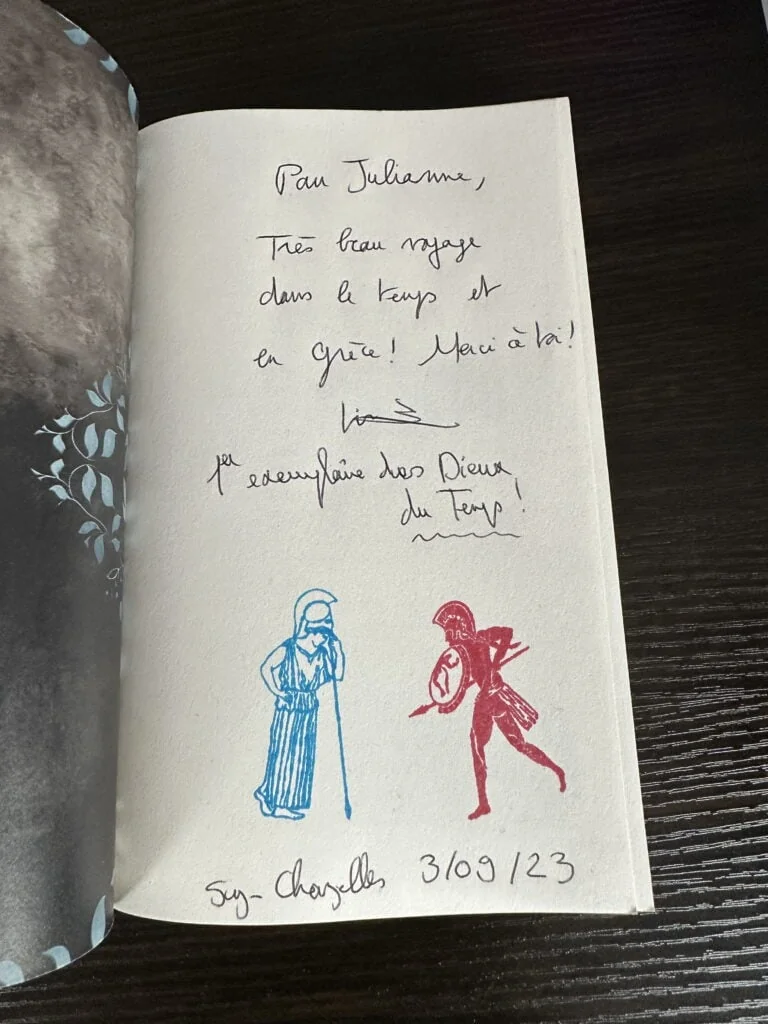 Pour Julianne,
Très beau voyage
dans le temps et
en Grèce! Merci à toi!
1er exemplaire des Dieux
du Temps!
Scy-Chazelles 3/09/23